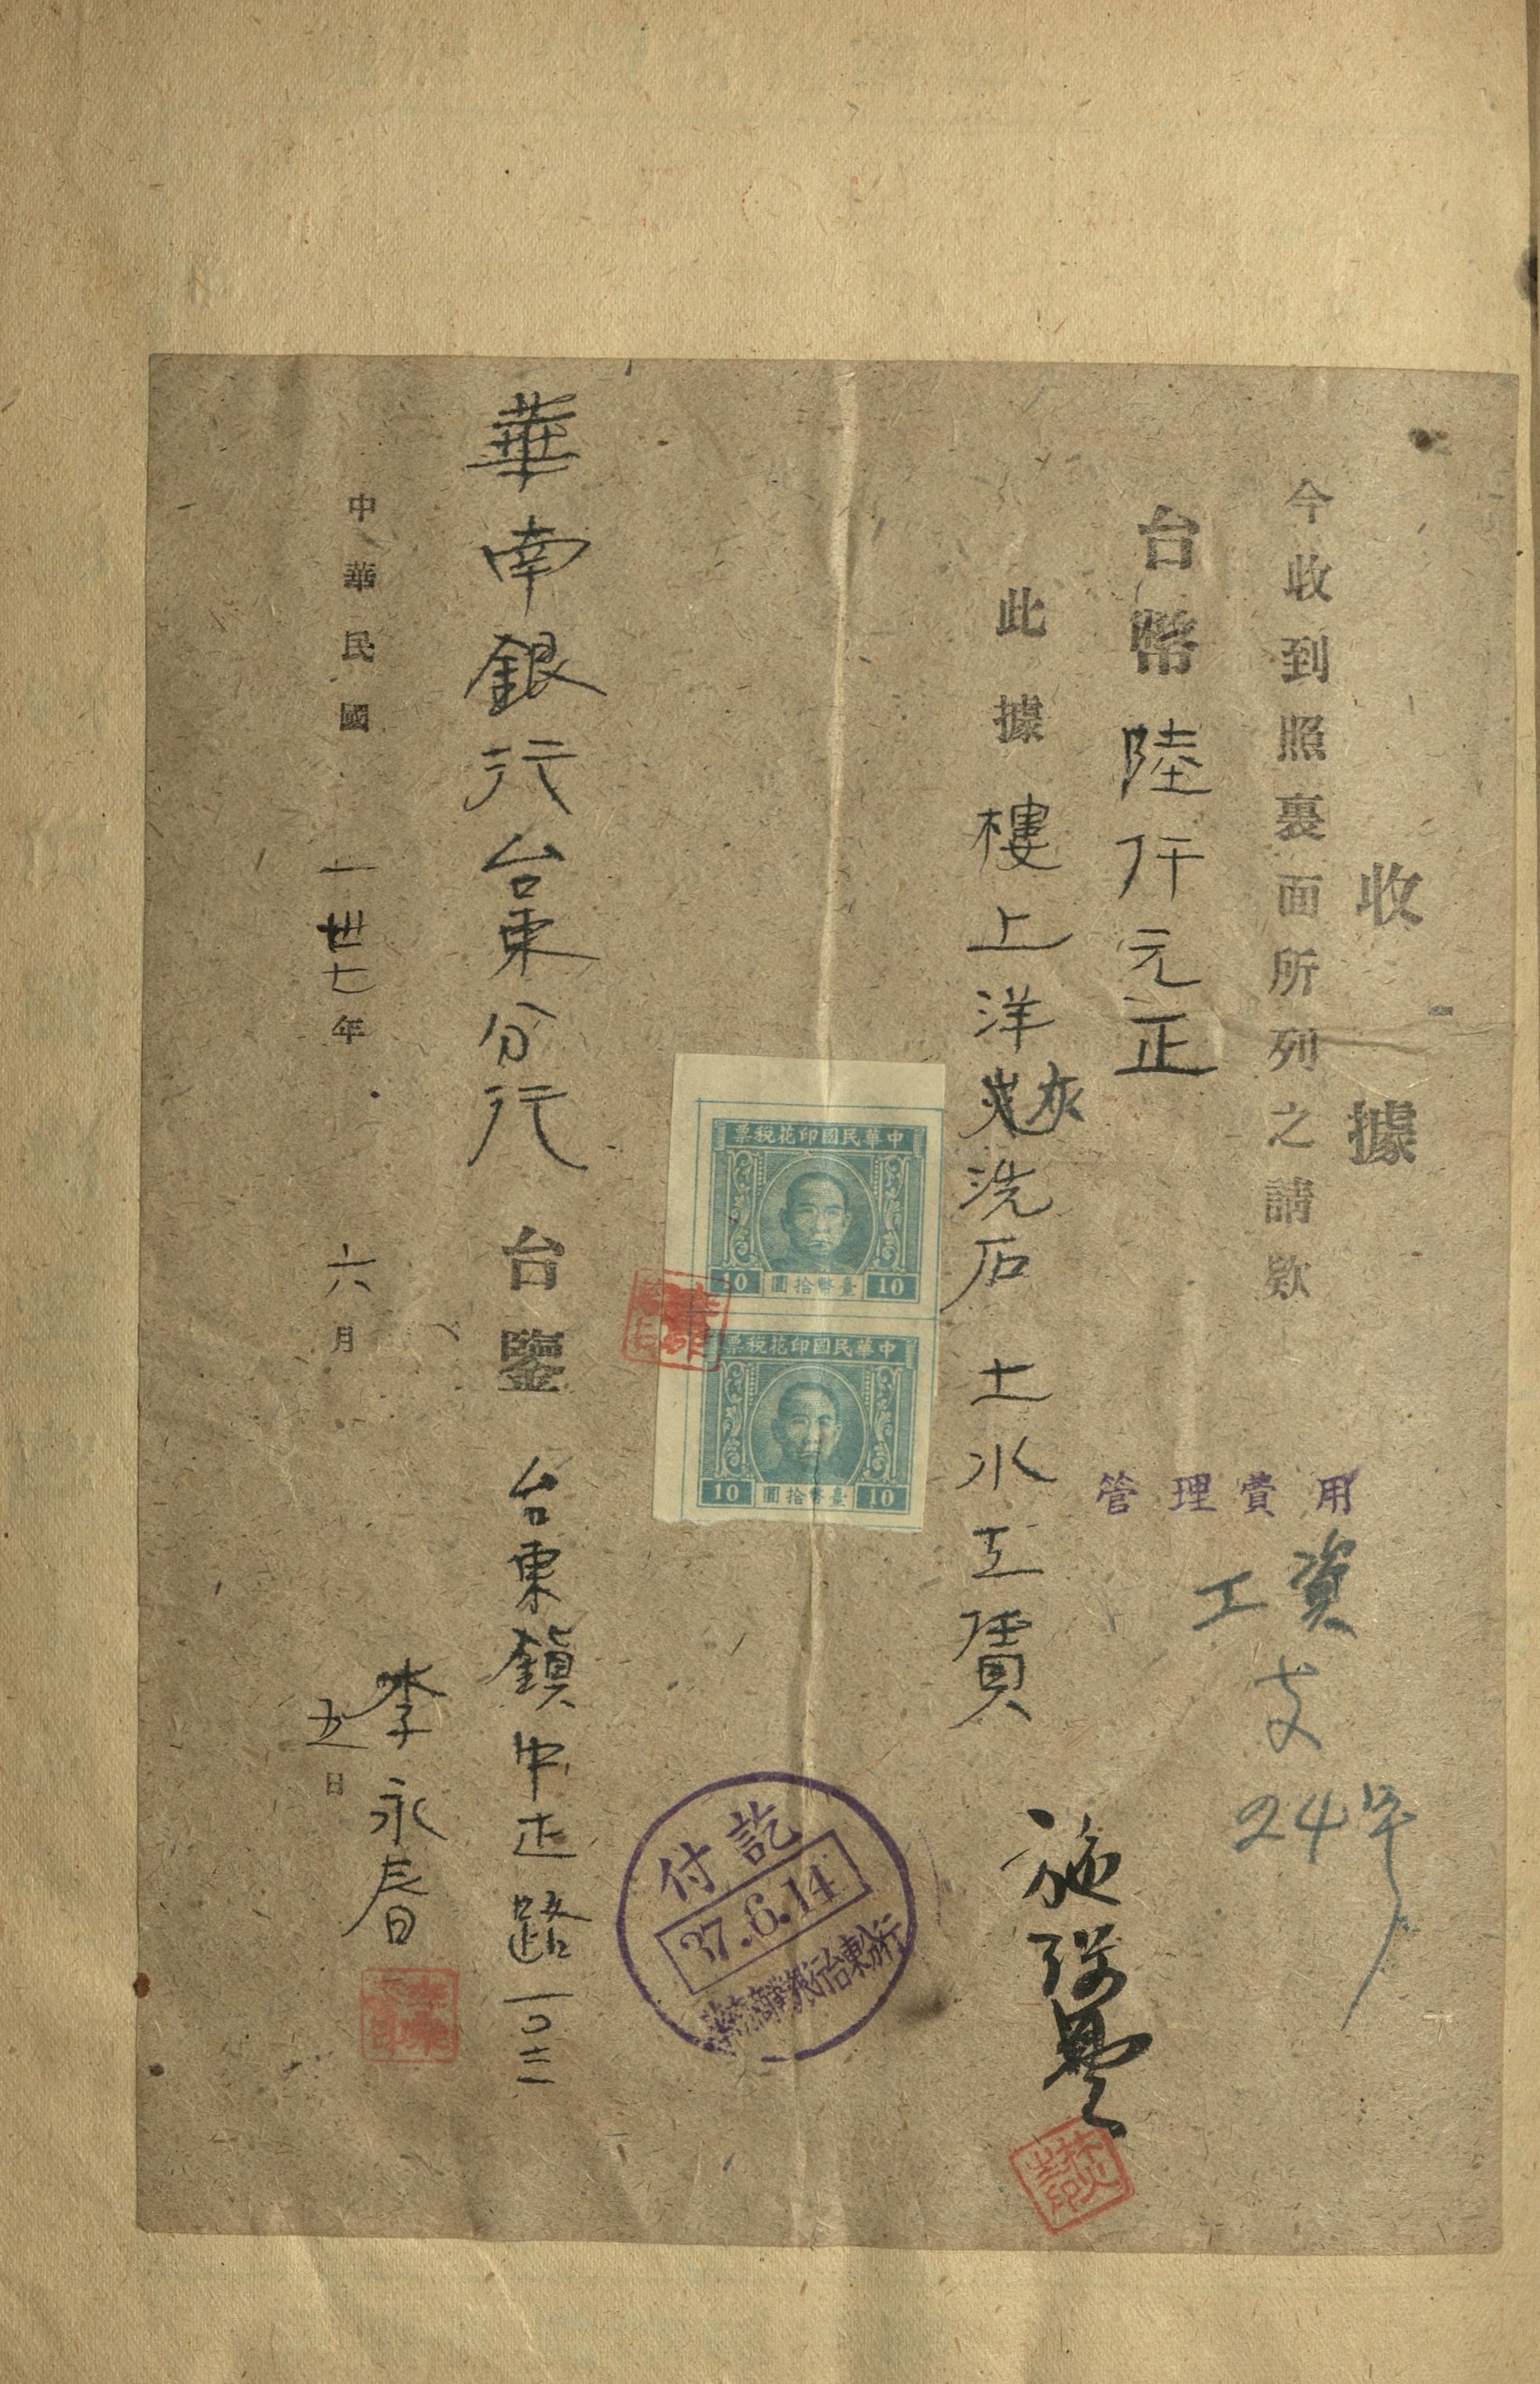 收據
今收到照裏面所列之請款
台幣陸仟元正
此據樓上洋灰洗石土水工賃
管理費用
工資
支
24号
中華民國印花税票
10 臺幣拾圓 10
中華民國印花税票
10 臺幣拾圓 10
付訖
37.6.14
華南銀行台東分行
華南銀行台東分行 台鑒
台東鎮中正路一〇三
李永春
中華民國 卅七年 六月 五日